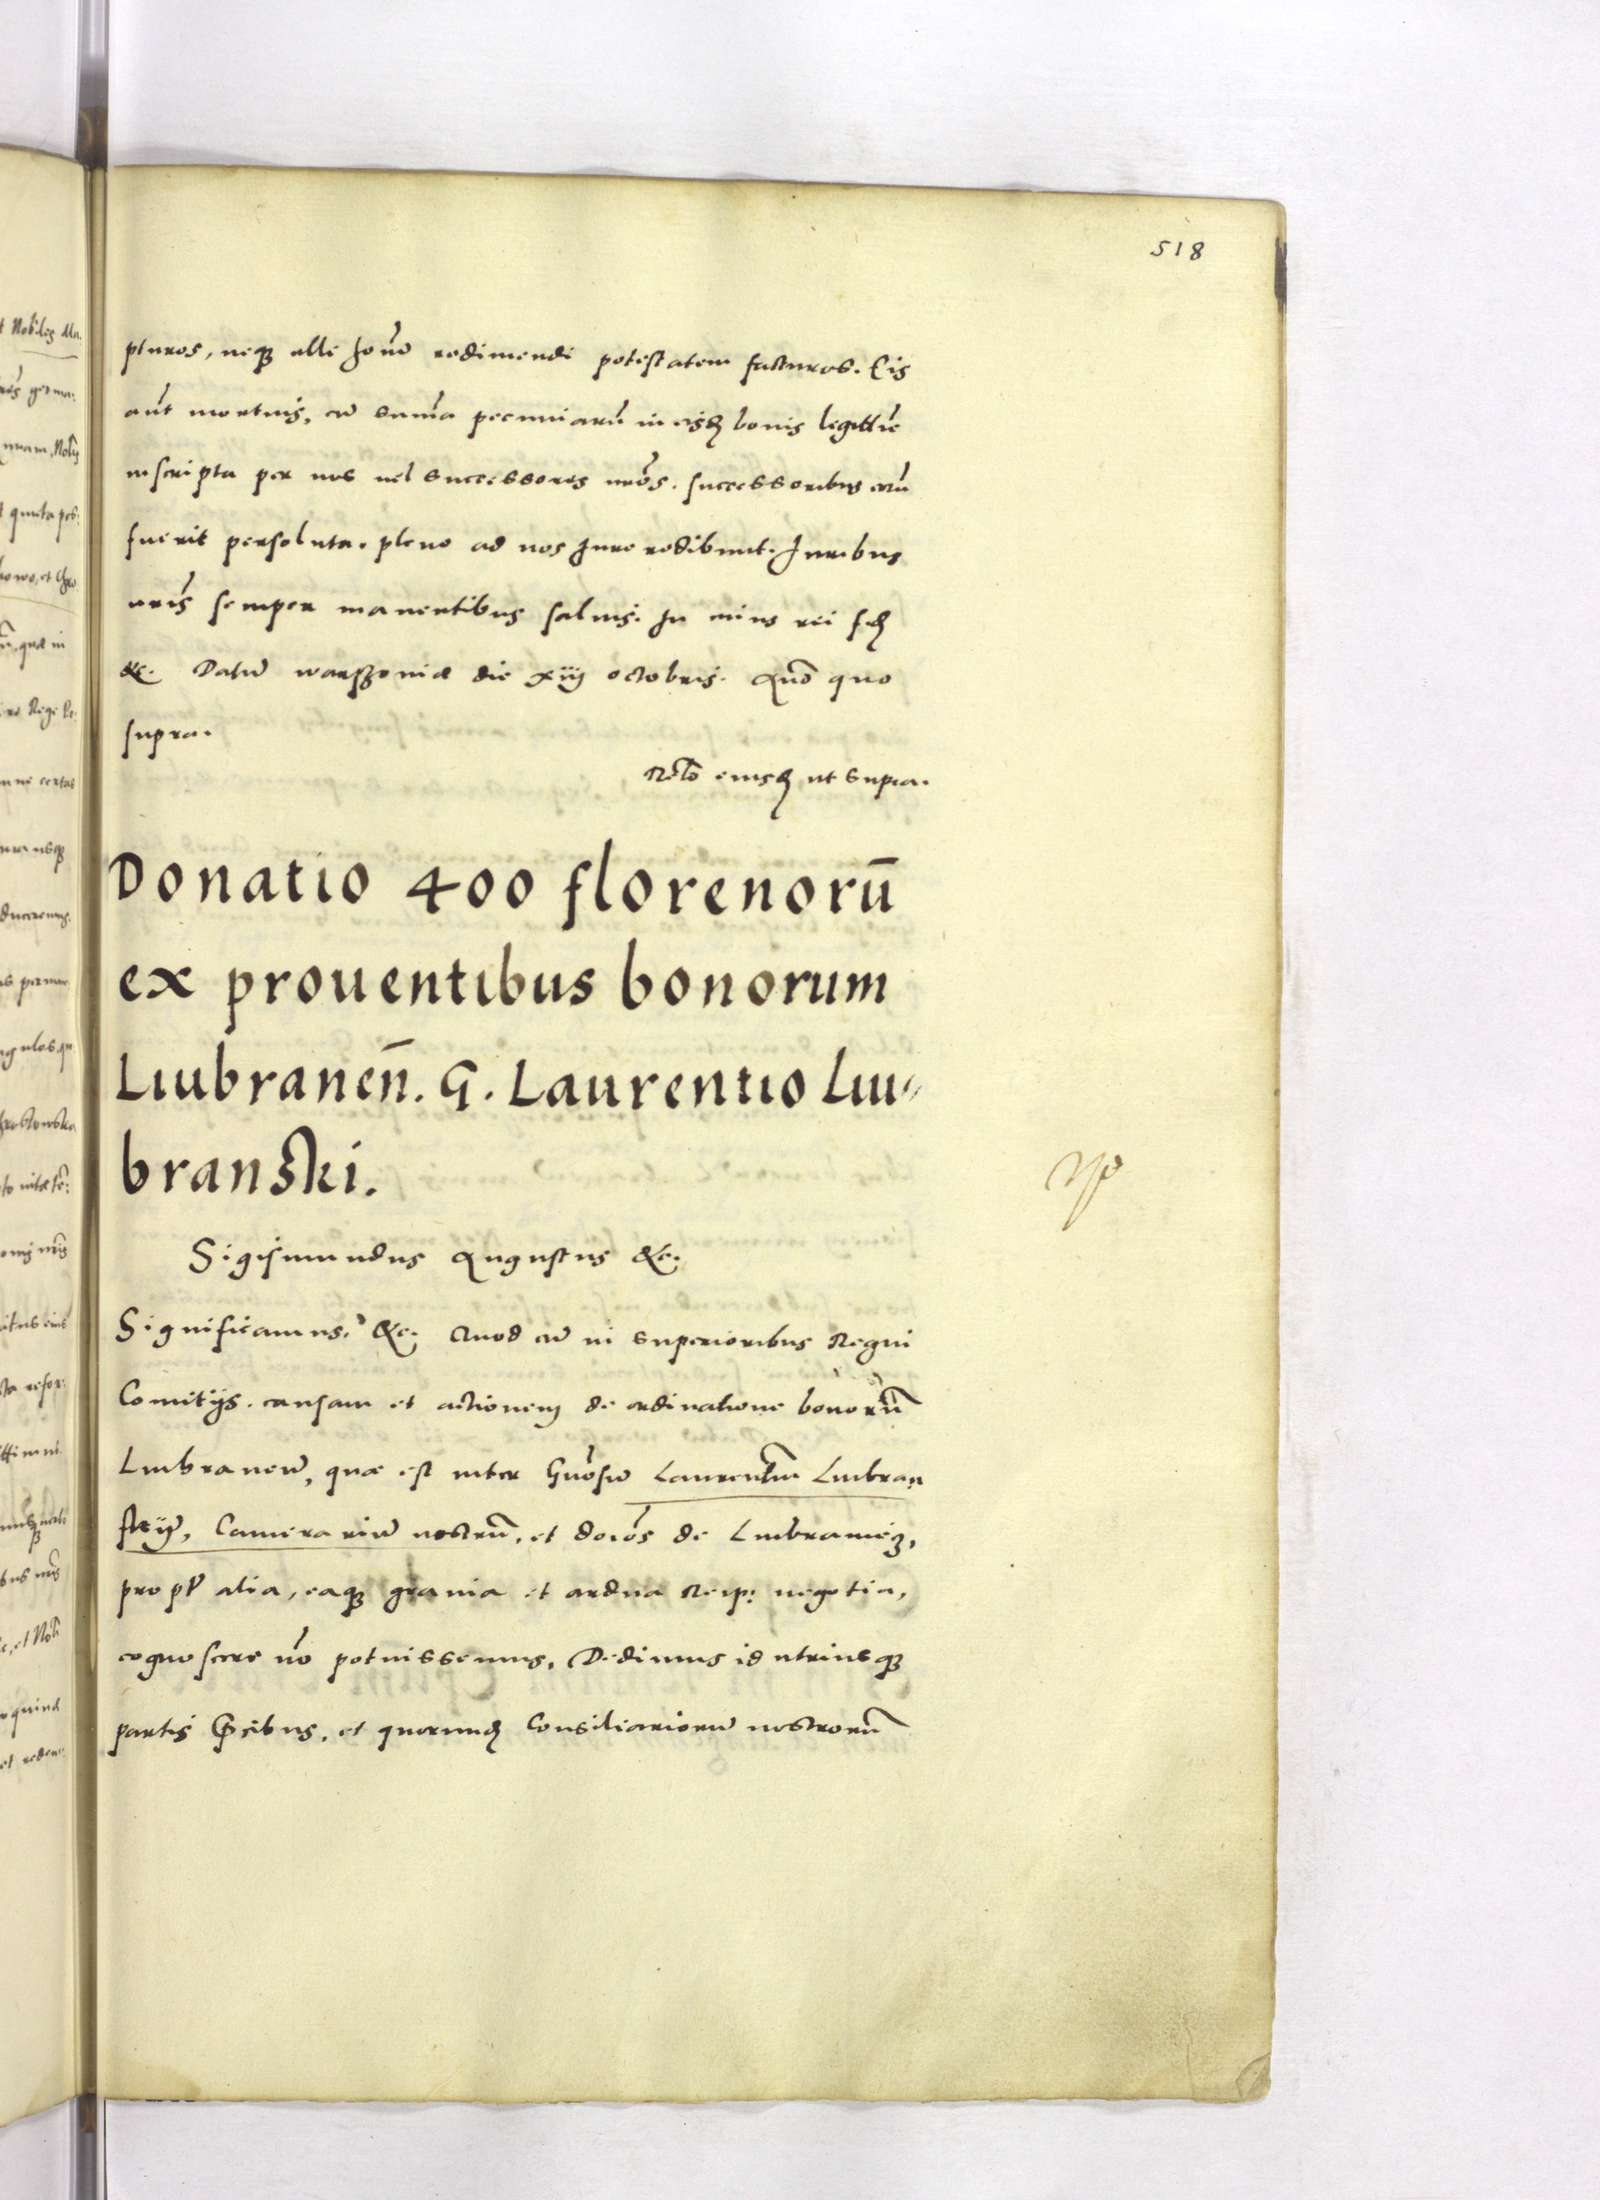 518
pturos, neq ulli hoīū redimendi potestatem facturos. Eis
aūt mortuis, cū sum̄a pecuniarū in eisd bonis legittīe
inscripta per nos uel successores nr̄os. successoribus eorū
fuerit persoluta. pleno ad nos Jure redibunt. Juribus
nr̄is semper manentibus saluis. In cuius rei fid
&c. Datū warszouiæ die xiij octobris. Anō quo
supra.
Rel̄o eiusd ut supra.
Donatio 400 florenorū
ex prouentibus bonorum
Liubraneñ. G. Laurentio Liu-
branski.
Sigismundus Augustus &c.
Significamus. &c. Quod cū in superioribus Regni
Comitijs. causam et actionem de ordinatione bonorū
Liubraneñ, quæ est inter Gn̄osū Laurentiū Liubran
skij, Camerariū nostrū. et doīos de Liubraniecz,
propt̄ alia, eaq grauia et ardua Reip: negotia,
cognoscere nō potuissemus, Dedimus id utriusq
partis p̄cibus, et quorund Consiliariorū nostrorū